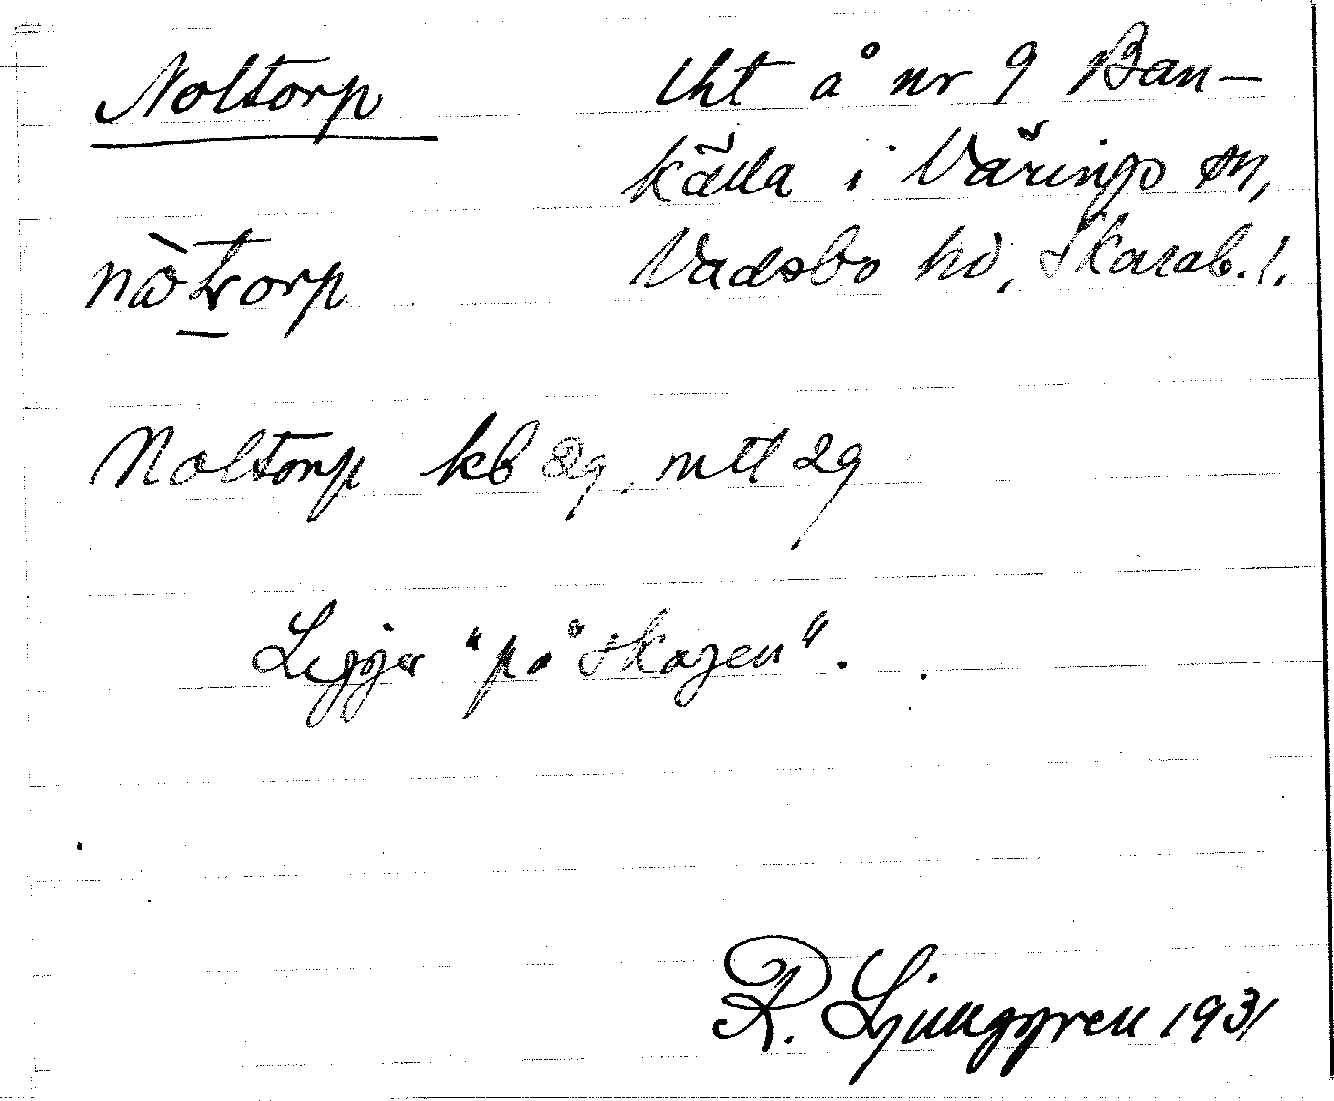 Noltorp
lht å nr 9 Ban-
källa i Värings sn,
Vadsbo hd, Skarab. l.
nòtorp
Noltorp kb 29, mtl 29
Ligger "på skogen".
R. Ljunggren 1931